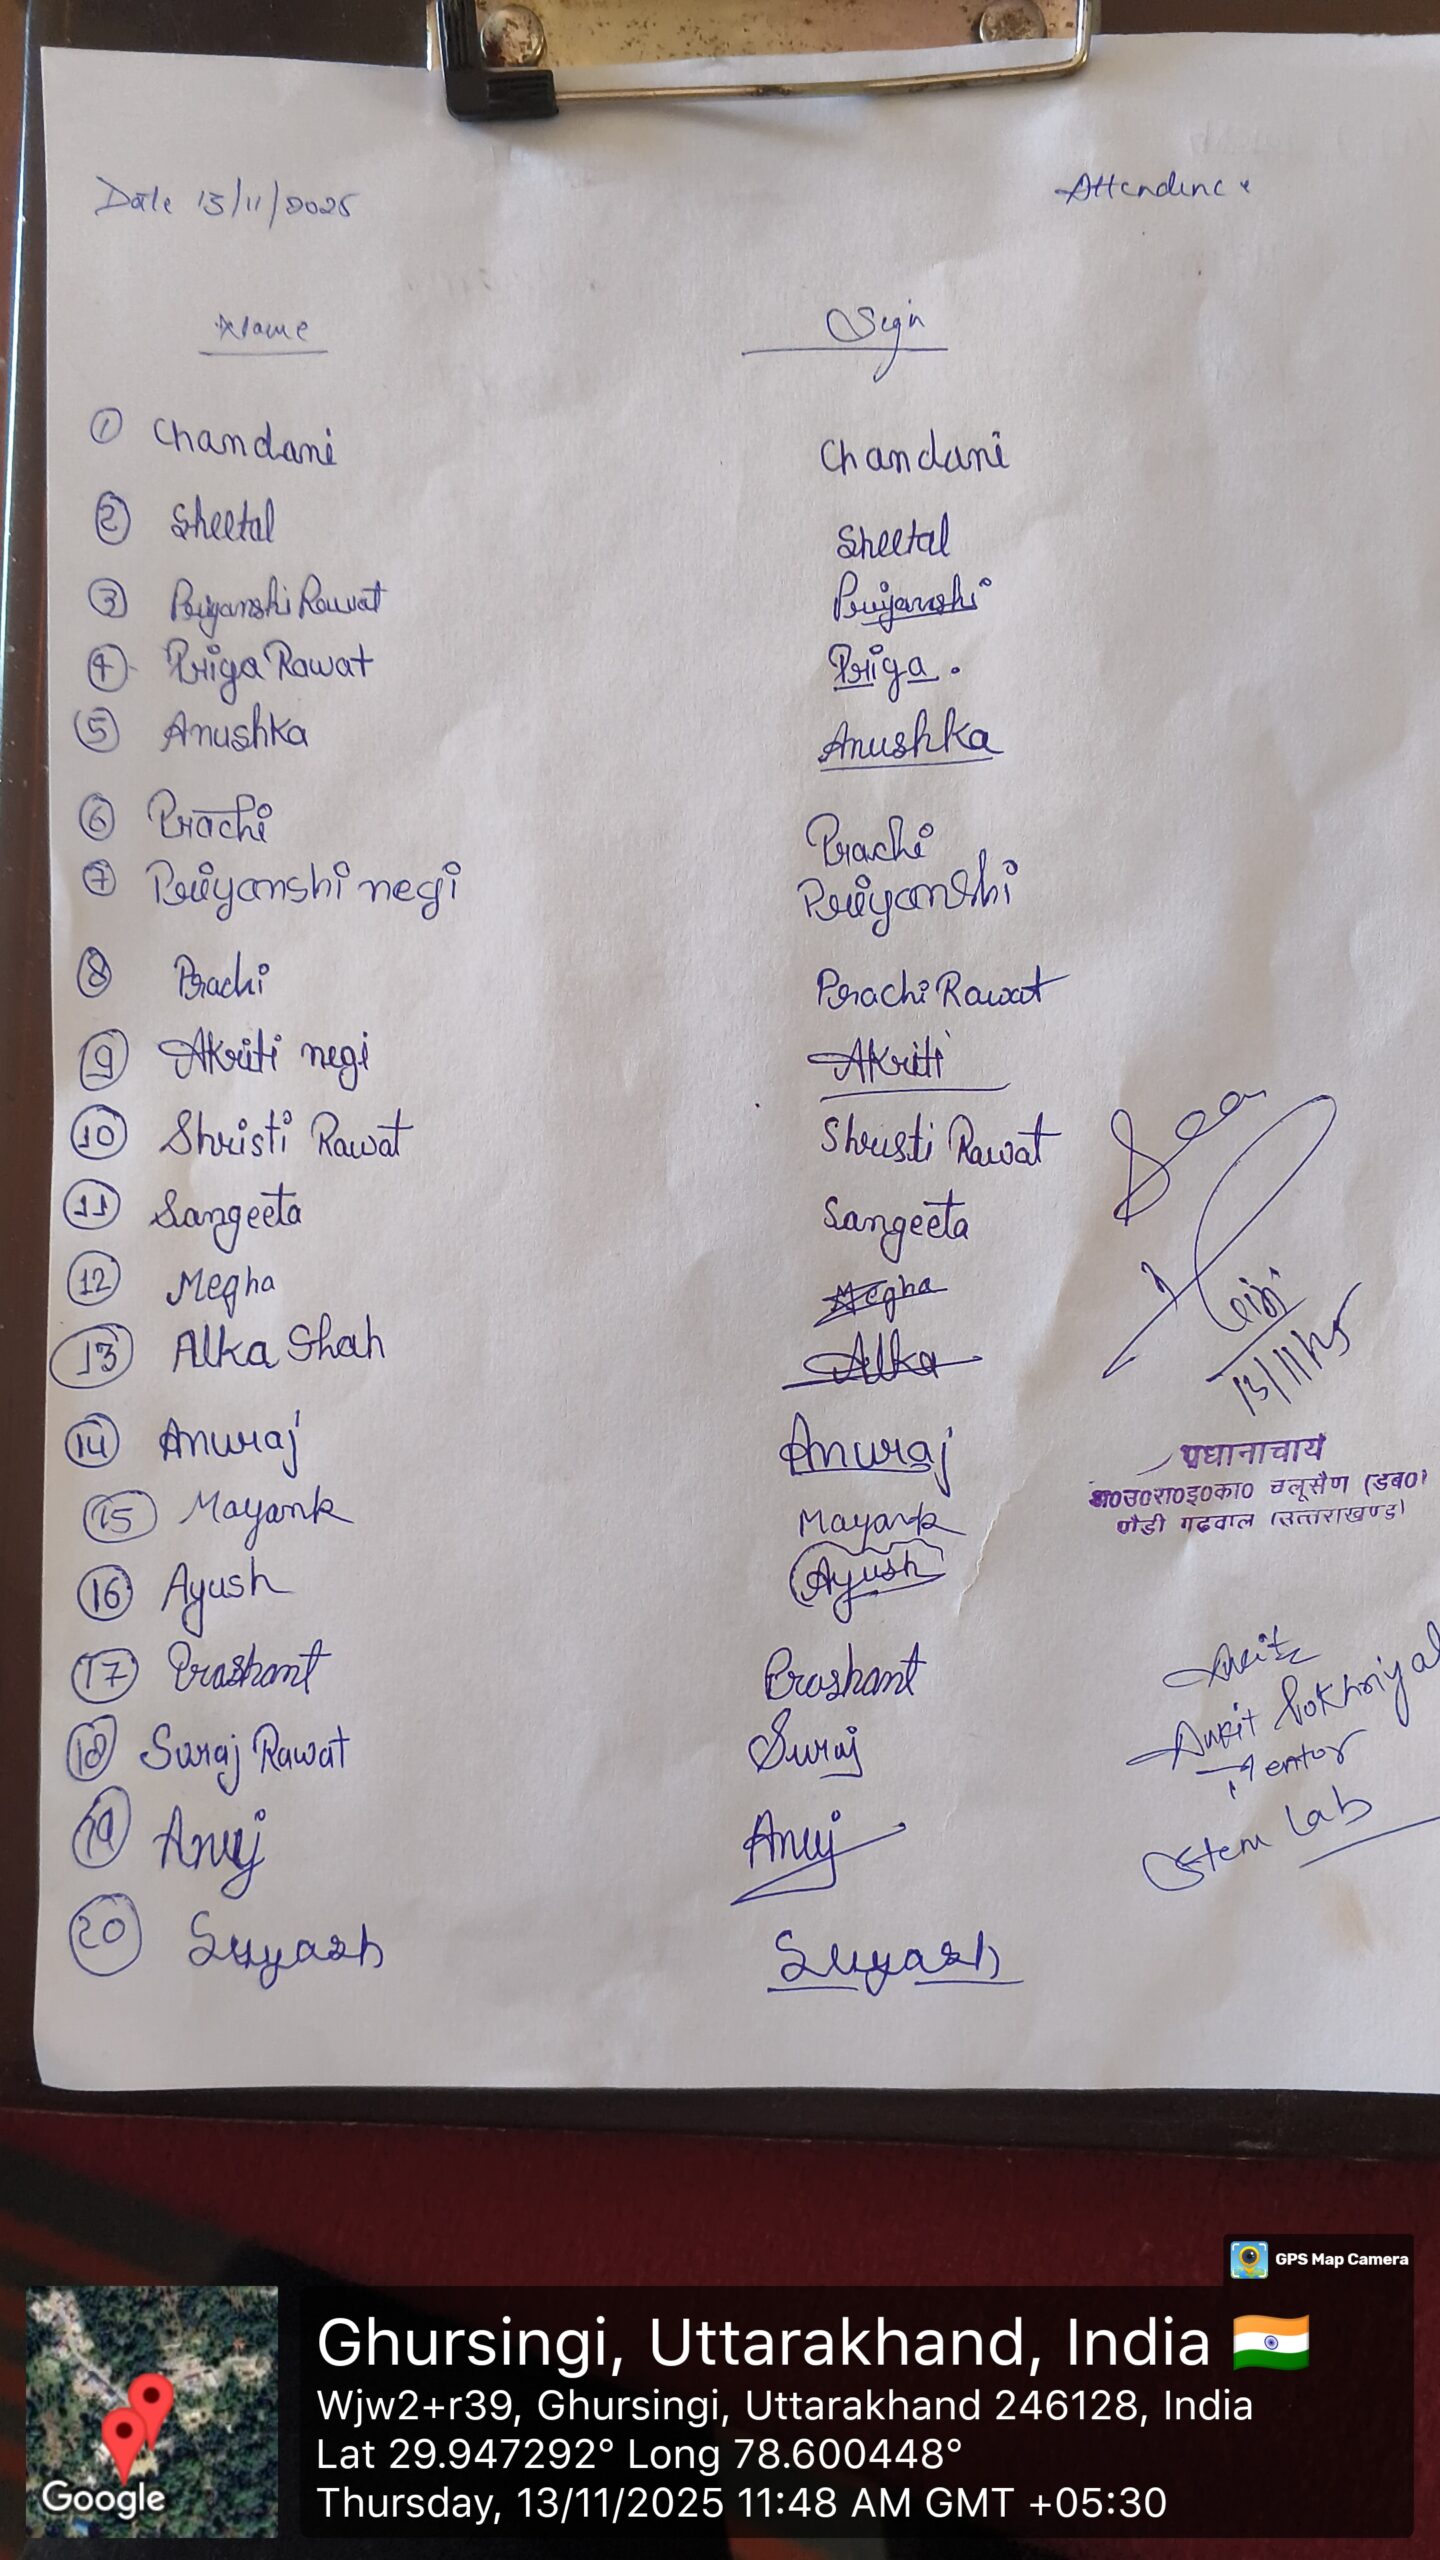 Date 13/11/2025
Attendence
Name Sign
1 Chandani Chandani
2 Sheetal Sheetal
3 Priyanshi Rawat Priyanshi
4 Priya Rawat Priya.
5 Anushka Anushka
6 Prachi Prachi
7 Priyanshi negi Priyanshi
8 Prachi Prachi Rawat
9 Akriti negi Akriti
10 Shristi Rawat Shristi Rawat
11 Sangeeta Sangeeta
12 Megha Megha
13 Alka Shah Alka
14 Anuraj Anuraj
15 Mayank Mayank
16 Ayush Ayush
17 Prashant Prashant
18 Suraj Rawat Suraj
19 Anuj Anuj
20 Suyash Suyash
13/11/25
प्रधानाचार्य
अ०उ०रा०इ०का० चलूसैण (डब०)
पौडी गढवाल (उत्तराखण्ड)
Ankit
Ankit Pokhriyal
Mentor
Stem Lab
GPS Map Camera
Ghursingi, Uttarakhand, India
Wjw2+r39, Ghursingi, Uttarakhand 246128, India
Lat 29.947292° Long 78.600448°
Thursday, 13/11/2025 11:48 AM GMT +05:30
Google